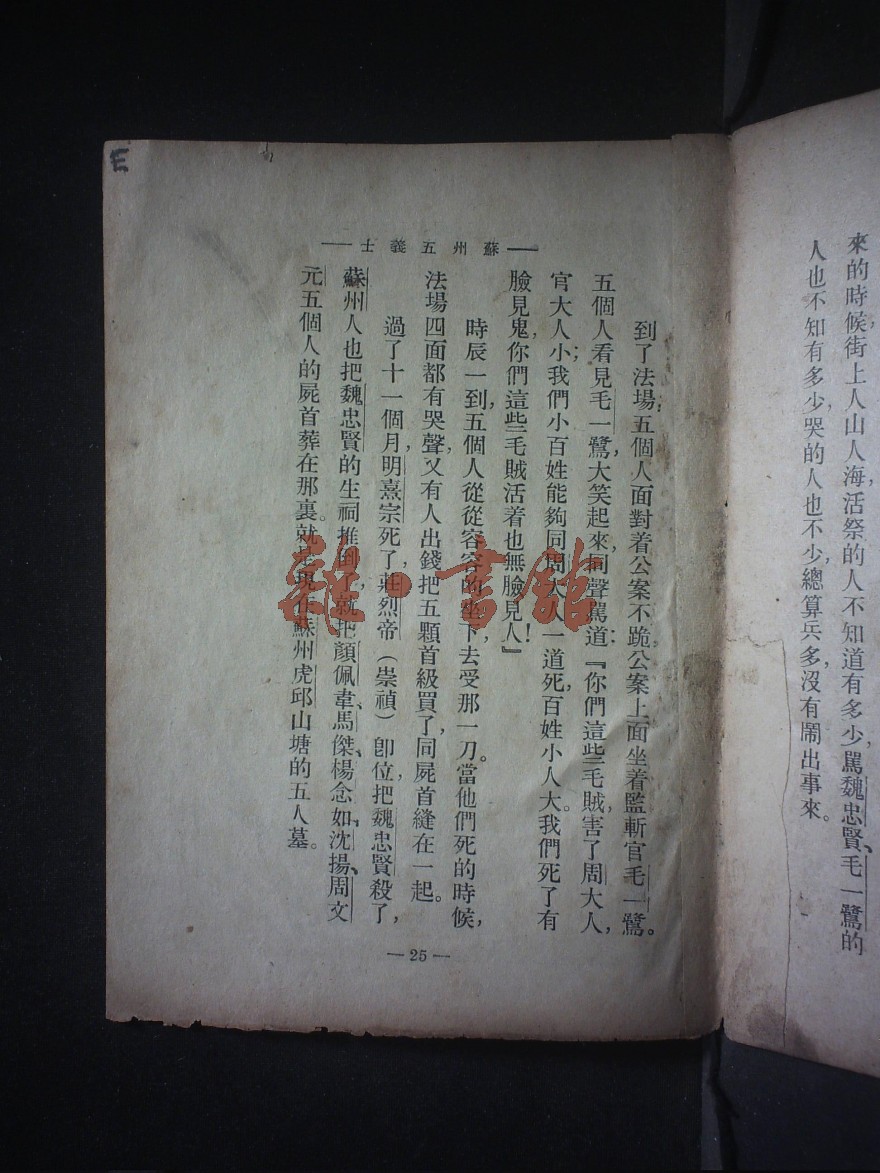 來的時候，街上人山人海，活祭的人不知道有多少，罵魏忠賢、毛一鷺的
人也不知有多少，哭的人也不少，總算兵多，沒有鬧出事來。
E
—蘇州五義士—
到了法場，五個人面對着公案不跪，公案上面坐着監斬官毛一鷺。
五個人看見毛一鷺，大笑起來，同聲罵道：『你們這些毛賊，害了周大人，
官大人小；我們小百姓能夠同周大人一道死，百姓小人大。我們死了有
臉見鬼，你們這些毛賊活着也無臉見人！』
時辰一到，五個人從從容容的坐下，去受那一刀。當他們死的時候，
法場四面都有哭聲，又有人出錢把五顆首級買了，同屍首縫在一起。
過了十一個月，明熹宗死了，莊烈帝（崇禎）卽位，把魏忠賢殺了，
蘇州人也把魏忠賢的生祠推倒了，就把顏佩韋、馬傑、楊念如、沈揚、周文
元五個人的屍首葬在那裏。就是現在蘇州虎邱山塘的五人墓。
—25—
雜·書館